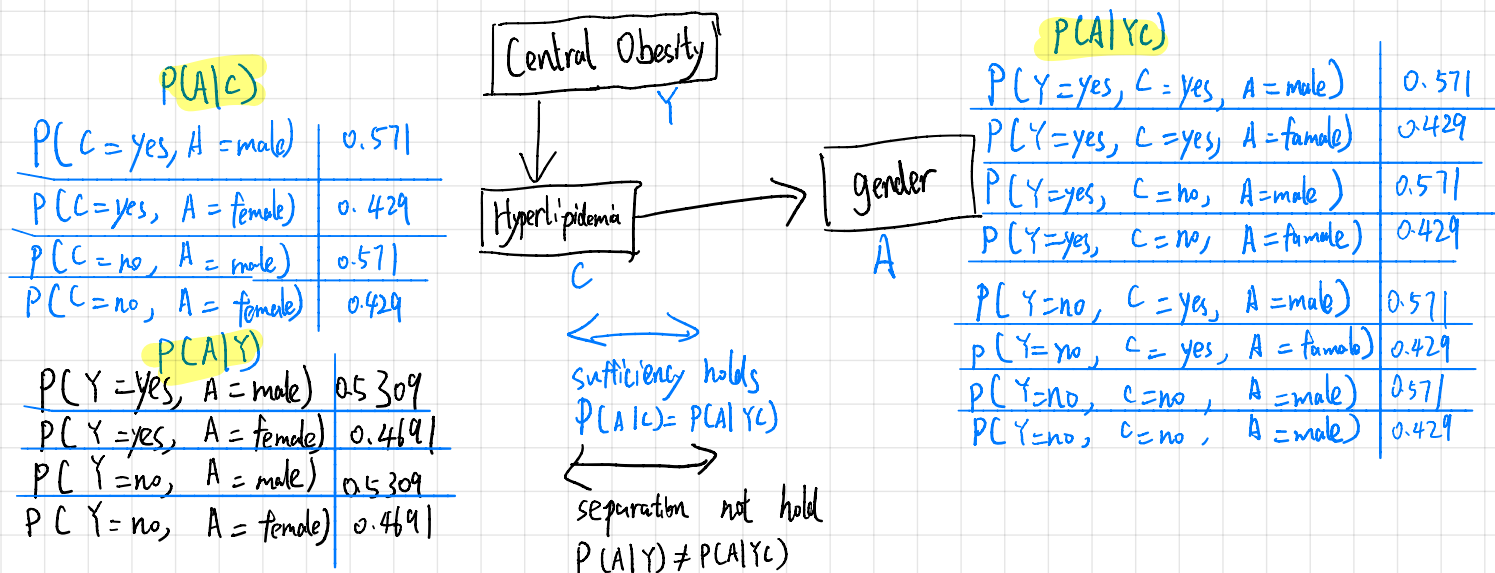 P(A|C)
P(C=yes, A=male) 0.571
P(C=yes, A=female) 0.429
P(C=no, A=male) 0.571
P(C=no, A=female) 0.429
P(A|Y)
P(Y=yes, A=male) 0.5309
P(Y=yes, A=female) 0.4691
P(Y=no, A=male) 0.5309
P(Y=no, A=female) 0.4691
Central Obesity
Y
Hyperlipidemia
C
gender
A
sufficiency holds
P(A|C)=P(A|YC)
separation not hold
P(A|Y)≠P(A|YC)
P(A|YC)
P(Y=yes, C=yes, A=male) 0.571
P(Y=yes, C=yes, A=famale) 0.429
P(Y=yes, C=no, A=male) 0.571
P(Y=yes, C=no, A=famale) 0.429
P(Y=no, C=yes, A=male) 0.571
P(Y=no, C=yes, A=famale) 0.429
P(Y=no, C=no, A=male) 0.571
P(Y=no, C=no, A=male) 0.429